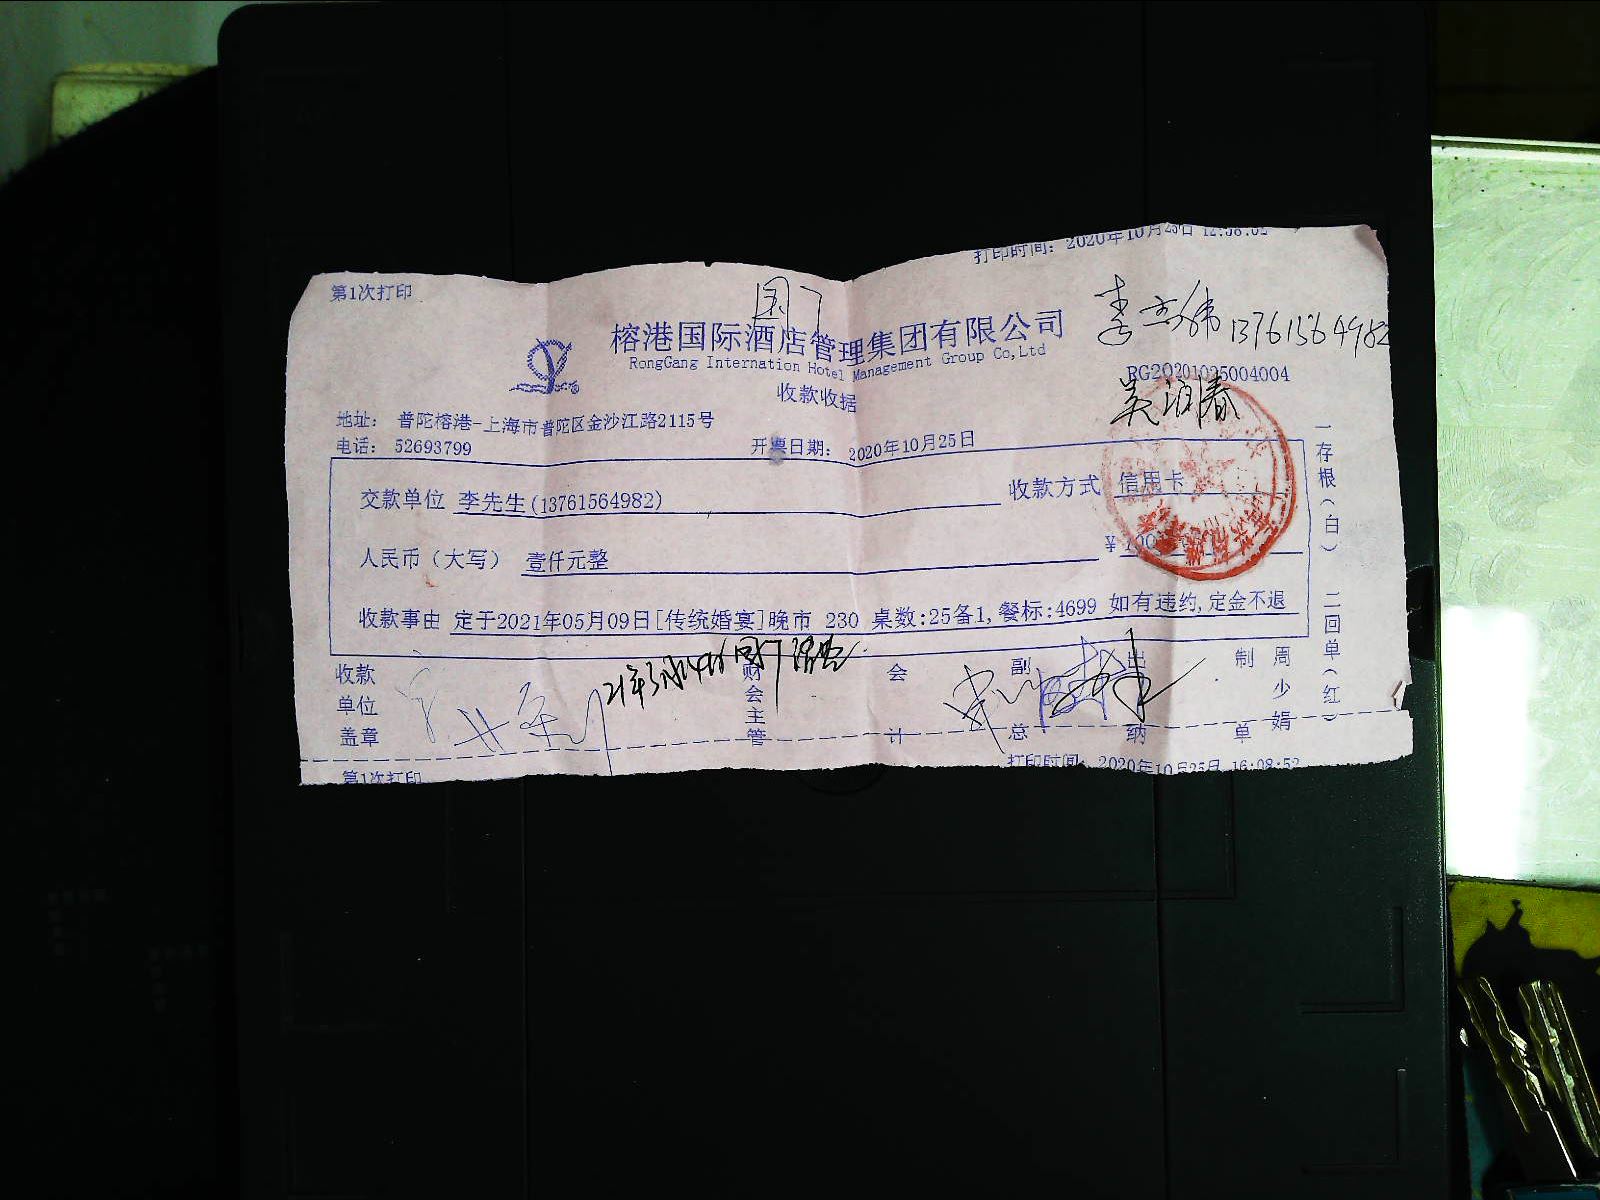 打印时间: 2020年10月25日 12:58:02
第1次打印
国丁
榕港国际酒店管理集团有限公司
RongGang Internation Hotel Management Group Co,Ltd
13761564982
RG20201025004004
收款收据
地址: 普陀榕港-上海市普陀区金沙江路2115号
电话: 52693799 开票日期: 2020年10月25日
交款单位 李先生(13761564982) 收款方式 信用卡
人民币(大写) 壹仟元整 ¥
收款事由 定于2021年05月09日[传统婚宴]晚市 230 桌数:25备1,餐标:4699 如有违约,定金不退
收款单位盖章 财会主管 会计 副总 出纳 制单 周少娟
一存根(白) 二回单(红)
第1次打印 打印时间: 2020年10月25日 16:08:52